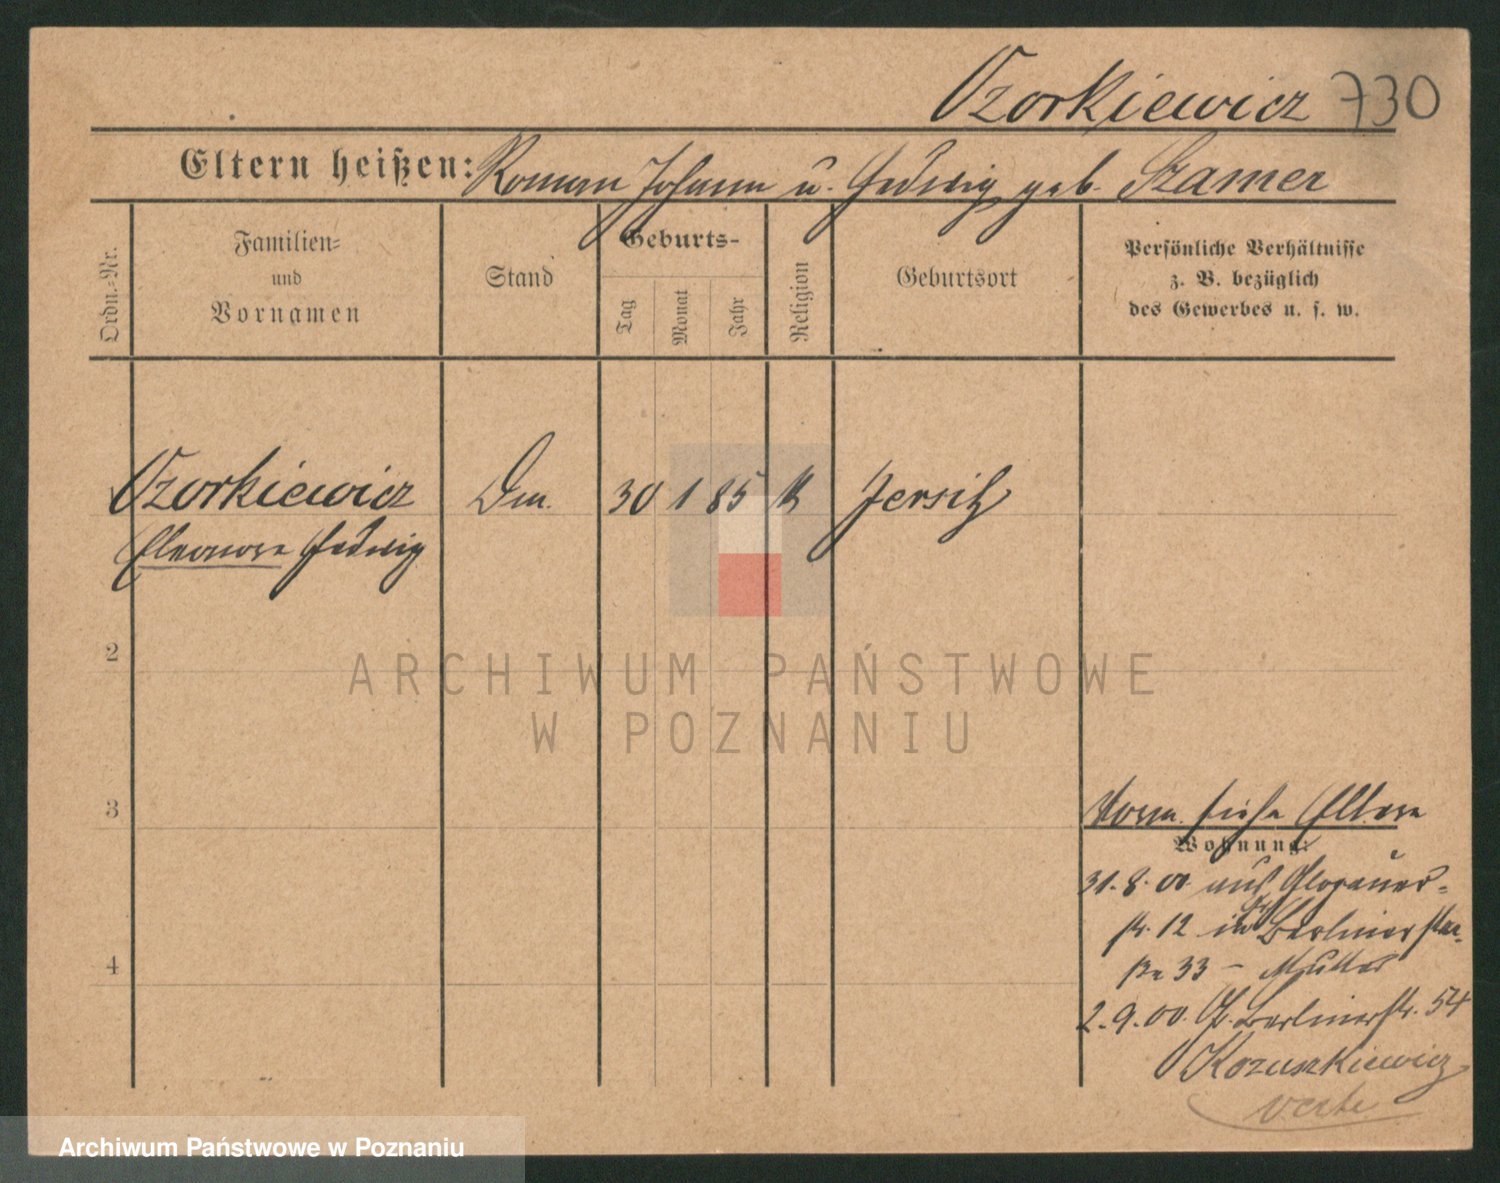 Ozorkiewicz 730
Eltern heißen: Roman Johann u. Hedwig geb. Szamer
Ordn.=Nr.
Familien=
und
Vornamen
Stand
Geburts-
Tag
Monat
Jahr
Religion
Geburtsort
Persönliche Verhältnisse
z. B. bezüglich
des Gewerbes u. s. w.
Ozorkiewicz 30 1 85 k Jersitz
Eleonore Hedwig
2
ARCHIWUM PAŃSTWOWE
W POZNANIU
3
Vorm. siehe Eltern
Wohnung:
31.8.00. aus Glogauer=
str. 12 in Berlinerstra-
ße 33 – Mutter
2.9.00. Berlinerstr. 54
4
Kozuszkiewicz
verte
Archiwum Państwowe w Poznaniu